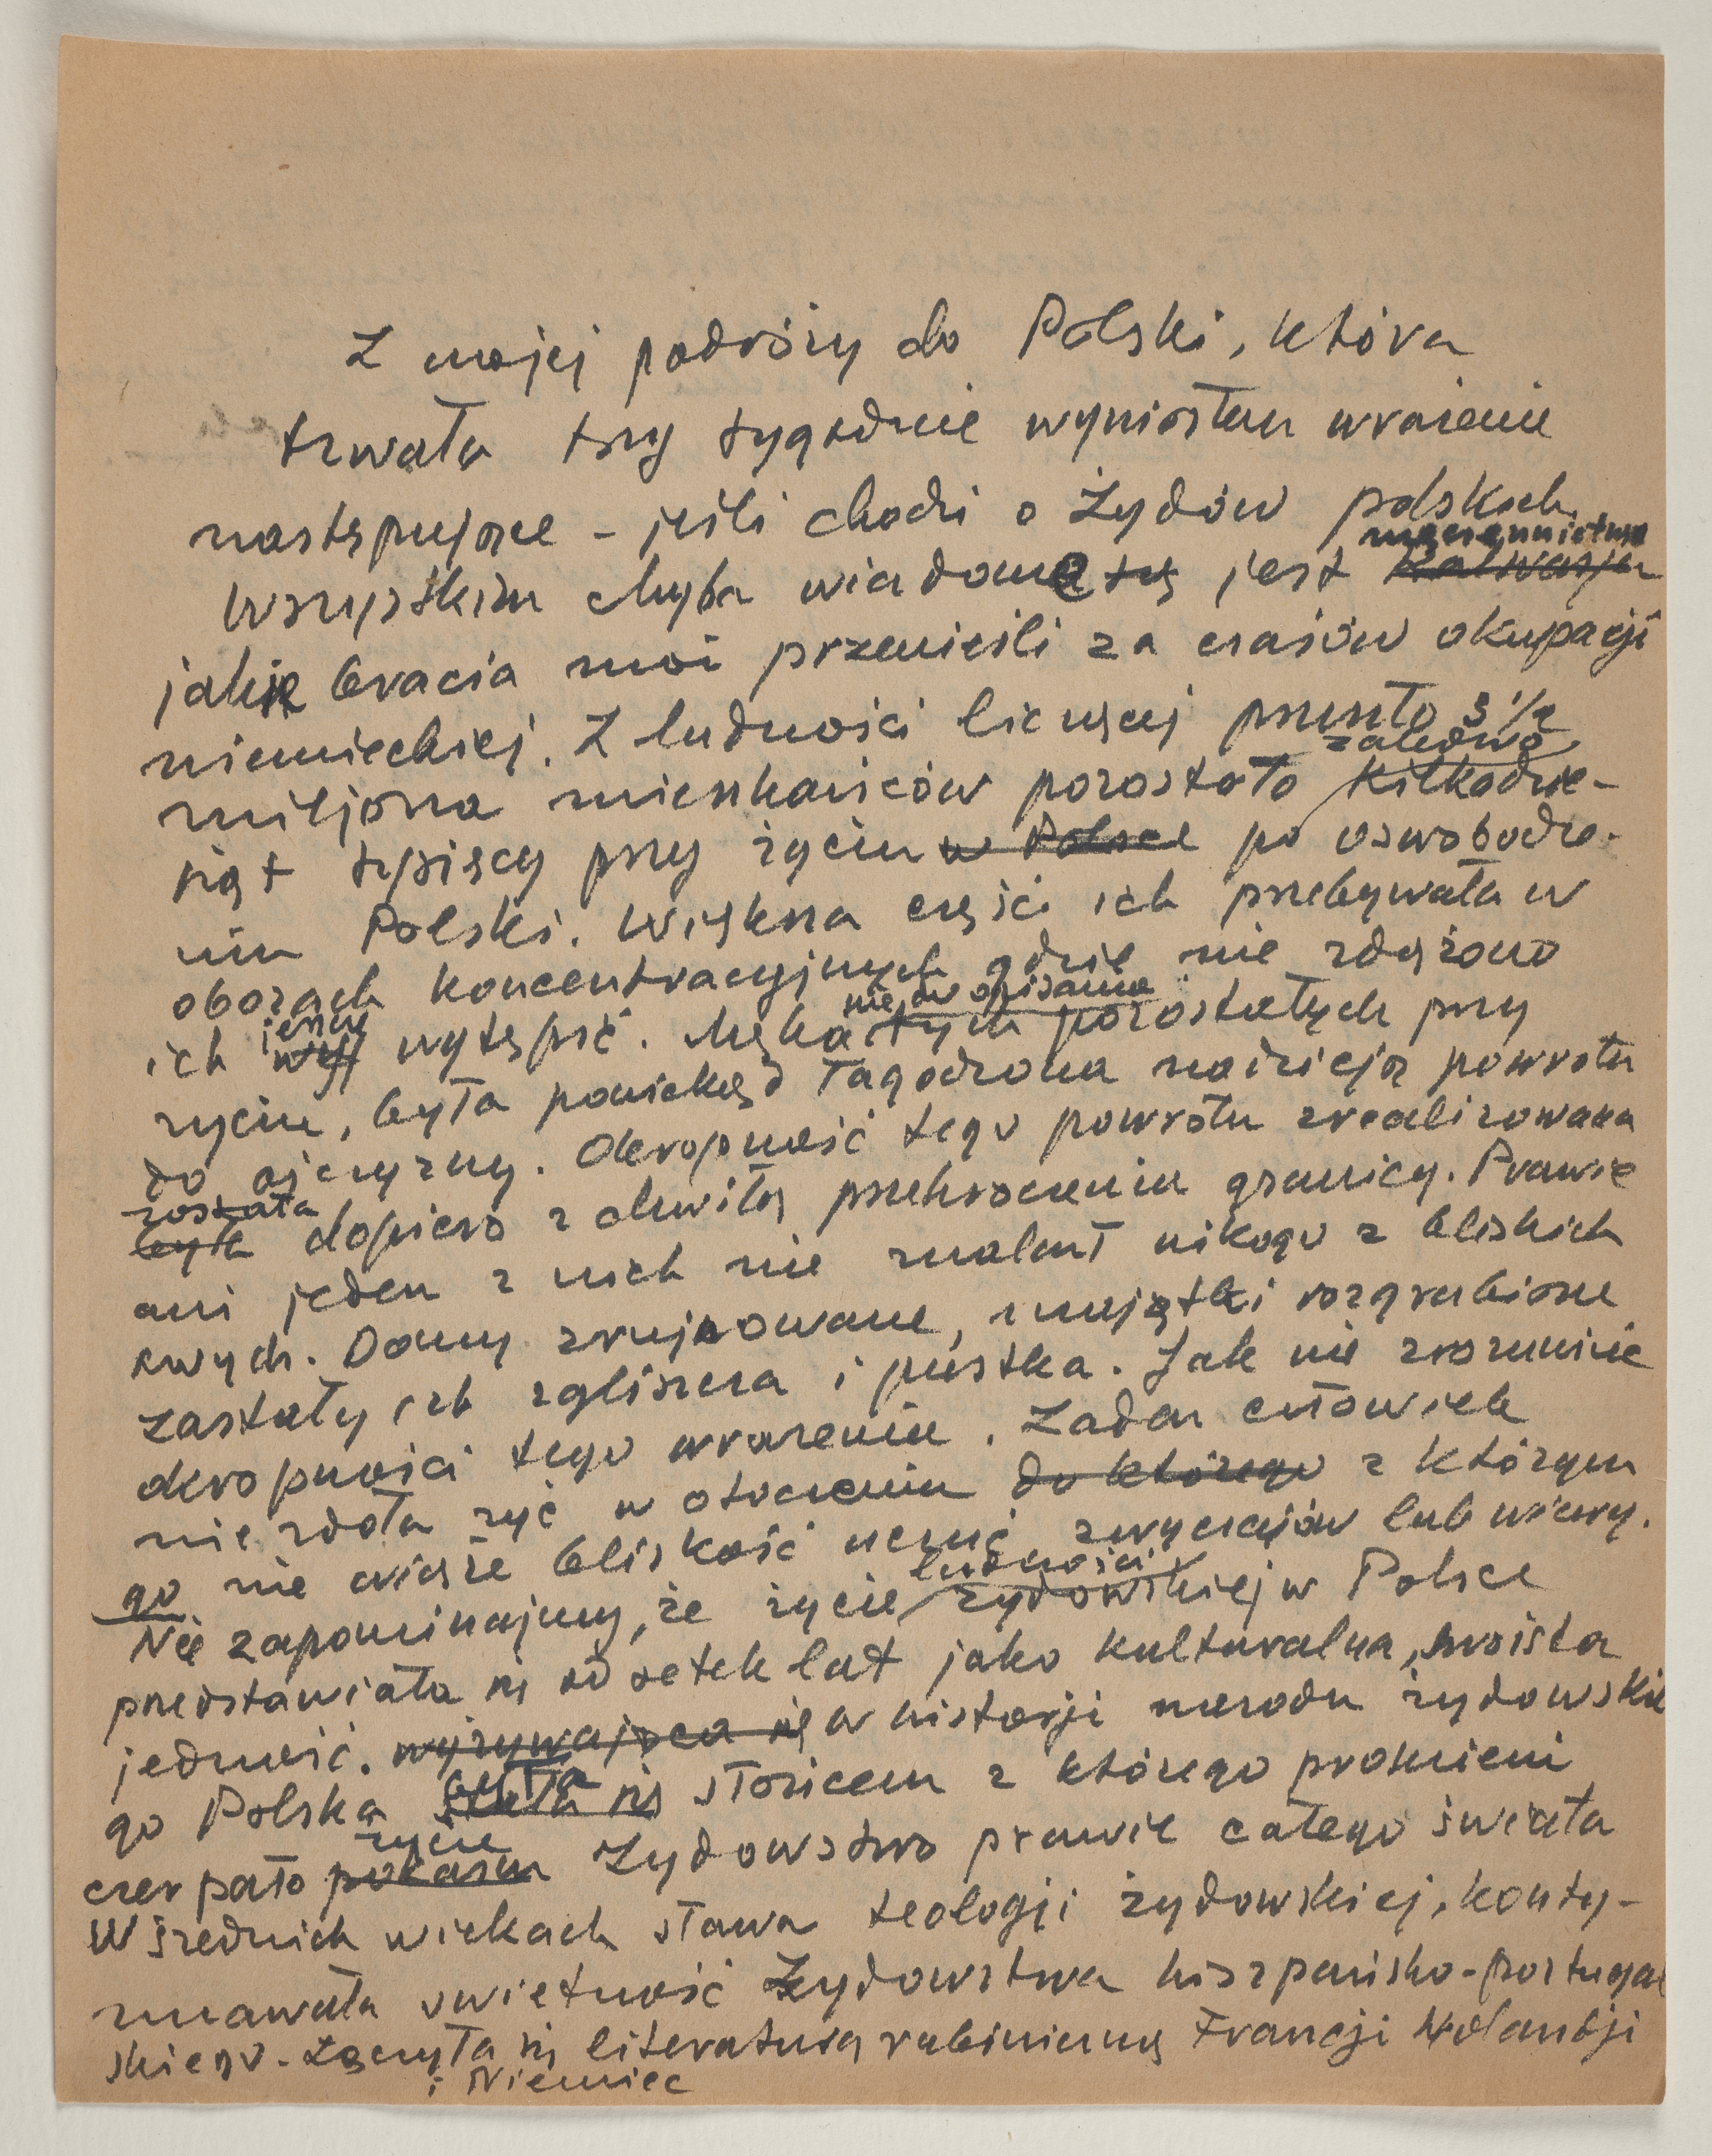 Z mojej podróży do Polski, która
trwała trzy tygodnie wyniosłem wrażenie
następujące - jeśli chodzi o Żydów polskich.
męczeństwo
Wszystkim chyba wiadome jest Kalwarja
jakie bracia moi przenieśli za czasów okupacji
niemieckiej. Z ludności liczącej przeszło 3 1/2
zaledwo
miljona mieszkańców pozostało kilkadzie-
siąt tysięcy przy życiu w Polsce po oswobodze-
niu Polski. Większa część ich przebywała w
obozach koncentracyjnych gdzie nie zdążono
jeszcze nie do opisania
ich wytępić. Męka tych pozostałych przy
życiu, była poniekąd łagodzona nadzieją powrotu
do ojczyzny. Okropność tego powrotu zrealizowana
została
była dopiero z chwilą przekroczenia granicy. Prawie
ani jeden z nich nie znalazł nikogo z bliskich
swych. Domy zrujnowane, majątki rozgrabione
zastały ich zgliszcza i pustka. Jak nie zrozumieć
okropności tego wrażenia. Żaden człowiek
nie zdoła żyć w otoczeniu do którego z którym
go nie wiąże bliskość uczuć zwyczajów lub wiary.
ludności
Nie zapominajmy, że życie żydowskiej w Polsce
przedstawiała się od setek lat jako kulturalna, swoista
jedność. wyżywająca się w historji narodu żydowskie
była
go Polska stała się słońcem z którego promieni
życie
czerpało Żydowstwo prawie całego świata
W średnich wiekach sława teologji żydowskiej, konty-
nuowała świetność Żydowstwa hiszpańsko-portugal
skiego. Łączyła się literaturą rabiniczną Francji Holandji
i Niemiec